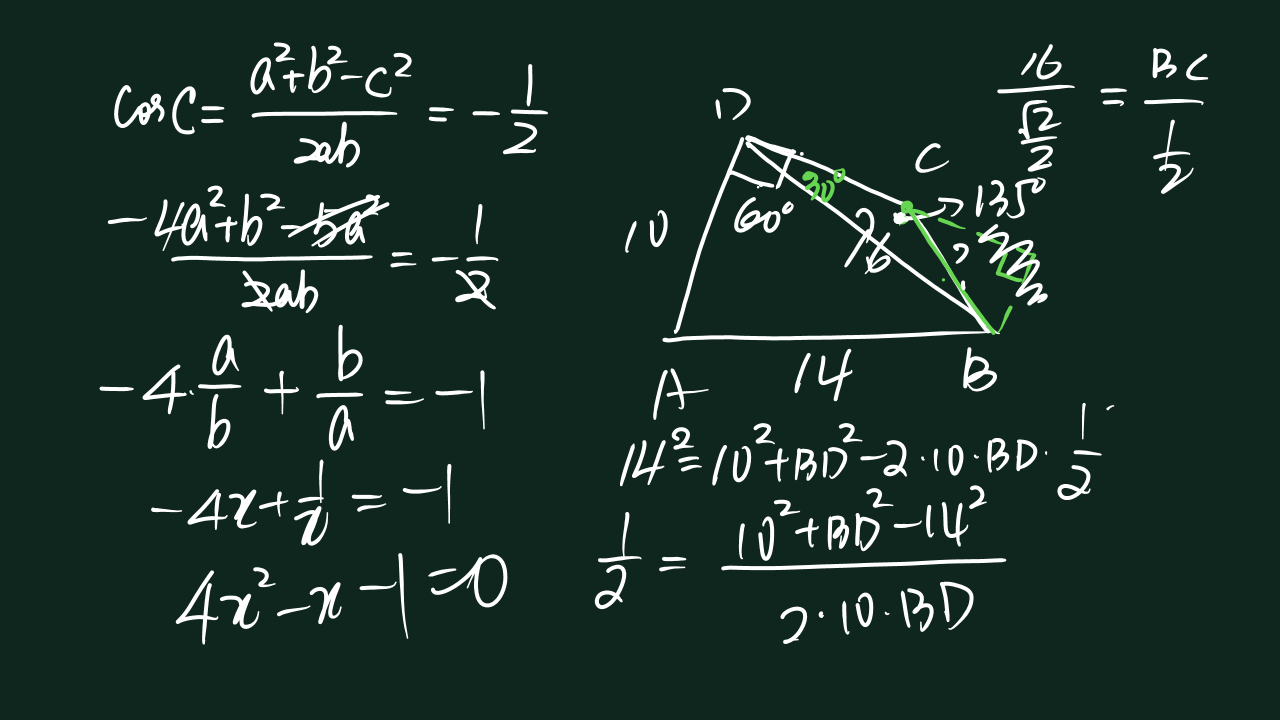 cosC = (a²+b²-c²)/(2ab) = -1/2
(-4a²+b²-5a²)/(2ab) = -1/2
-4·a/b + b/a = -1
-4x+1/x = -1
4x²-x-1=0
D
C
10
60°
30°
16
135°
?
A
14
B
16/(√2/2) = BC/(1/2)
14²=10²+BD²-2·10·BD·1/2
1/2 = (10²+BD²-14²)/(2·10·BD)